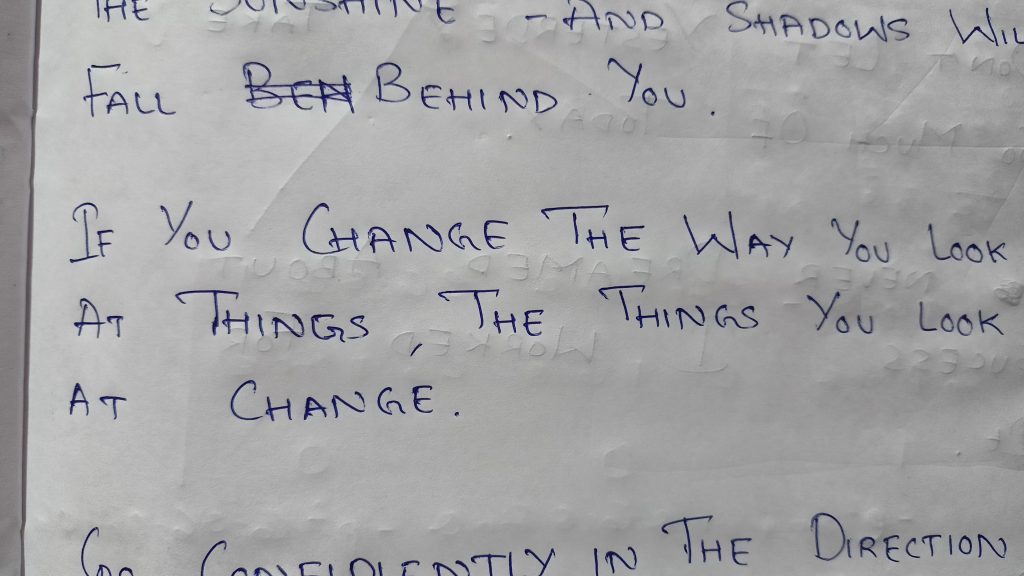 THE SUNSHINE - AND SHADOWS WIL
FALL BEH BEHIND YOU.
IF YOU CHANGE THE WAY YOU LOOK
AT THINGS, THE THINGS YOU LOOK
AT CHANGE.
GO CONFIDIENTLY IN THE DIRECTION